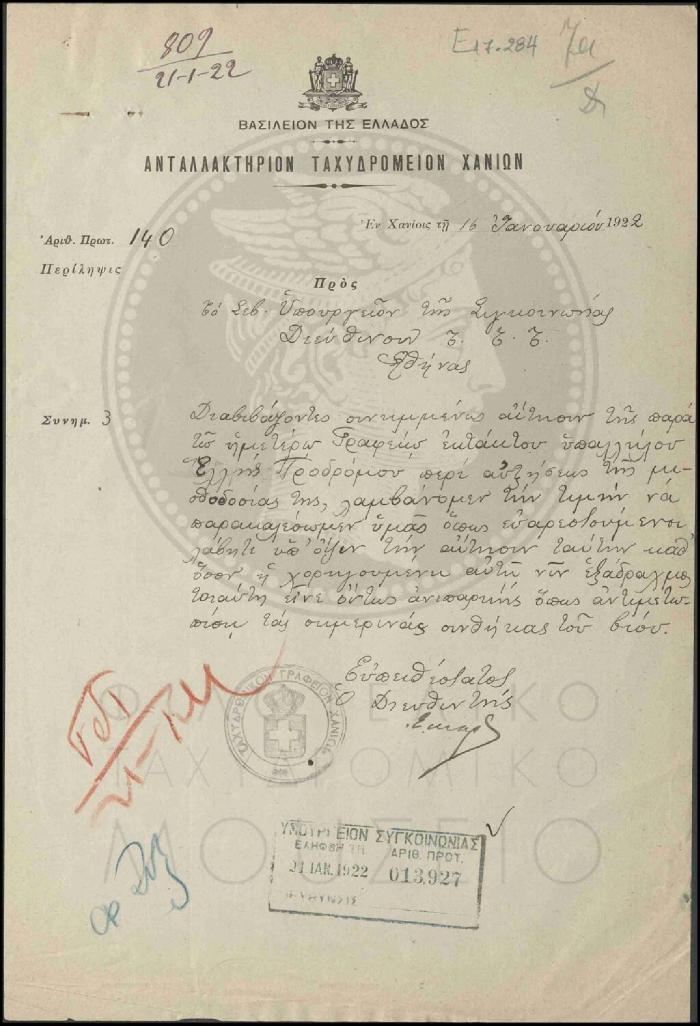 809
21-1-22
E17.284
ΒΑΣΙΛΕΙΟΝ ΤΗΣ ΕΛΛΑΔΟΣ
ΑΝΤΑΛΛΑΚΤΗΡΙΟΝ ΤΑΧΥΔΡΟΜΕΙΟΝ ΧΑΝΙΩΝ
Ἐν Χανίοις τῇ 16 Ἰανουαρίου 1922
Ἀριθ. Πρωτ. 140
Περίληψις
Πρὸς
τό Σεβ. Ὑπουργεῖον τῆς Συγκοινωνίας
Διεύθυνσιν Τ. Τ. Τ.
Ἀθήνας
Συνημ. 3
Διαβιβάζοντες συνημμένως αἴτησιν τῆς παρά
τῷ ἡμετέρῳ Γραφείῳ ἐκτάκτου ὑπαλλήλου
Ἕλλης Προδρόμου περί αὐξήσεως τῆς μι-
σθοδοσίας της, λαμβάνομεν τήν τιμήν νά
παρακαλέσωμεν ὑμᾶς ὅπως εὐαρεστούμενοι
λάβητε ὑπ' ὄψιν τήν αἴτησιν ταύτην καθ'
ὅσον ἡ χορηγουμένη αὐτῇ νῦν ἑξάδραχμος
τοιαύτη εἶνε ὄντως ἀνεπαρκής ὅπως ἀντιμετω-
πίσῃ τάς σημερινάς συνθήκας τοῦ βίου.
Εὐπειθέστατος
Ὁ Διευθυντής
ΤΑΧΥΔΡΟΜΙΚΟΝ ΓΡΑΦΕΙΟΝ ΧΑΝΙΩΝ
ΥΠΟΥΡΓΕΙΟΝ ΣΥΓΚΟΙΝΩΝΙΑΣ
ΕΛΗΦΘΗ ΤΗ ΑΡΙΘ. ΠΡΩΤ.
21 ΙΑΝ. 1922 013,927
ΔΙΕΥΘΥΝΣΙΣ
ΦΙΛΟΤΕΛΙΚΟ
ΤΑΧΥΔΡΟΜΙΚΟ
ΜΟΥΣΕΙΟ